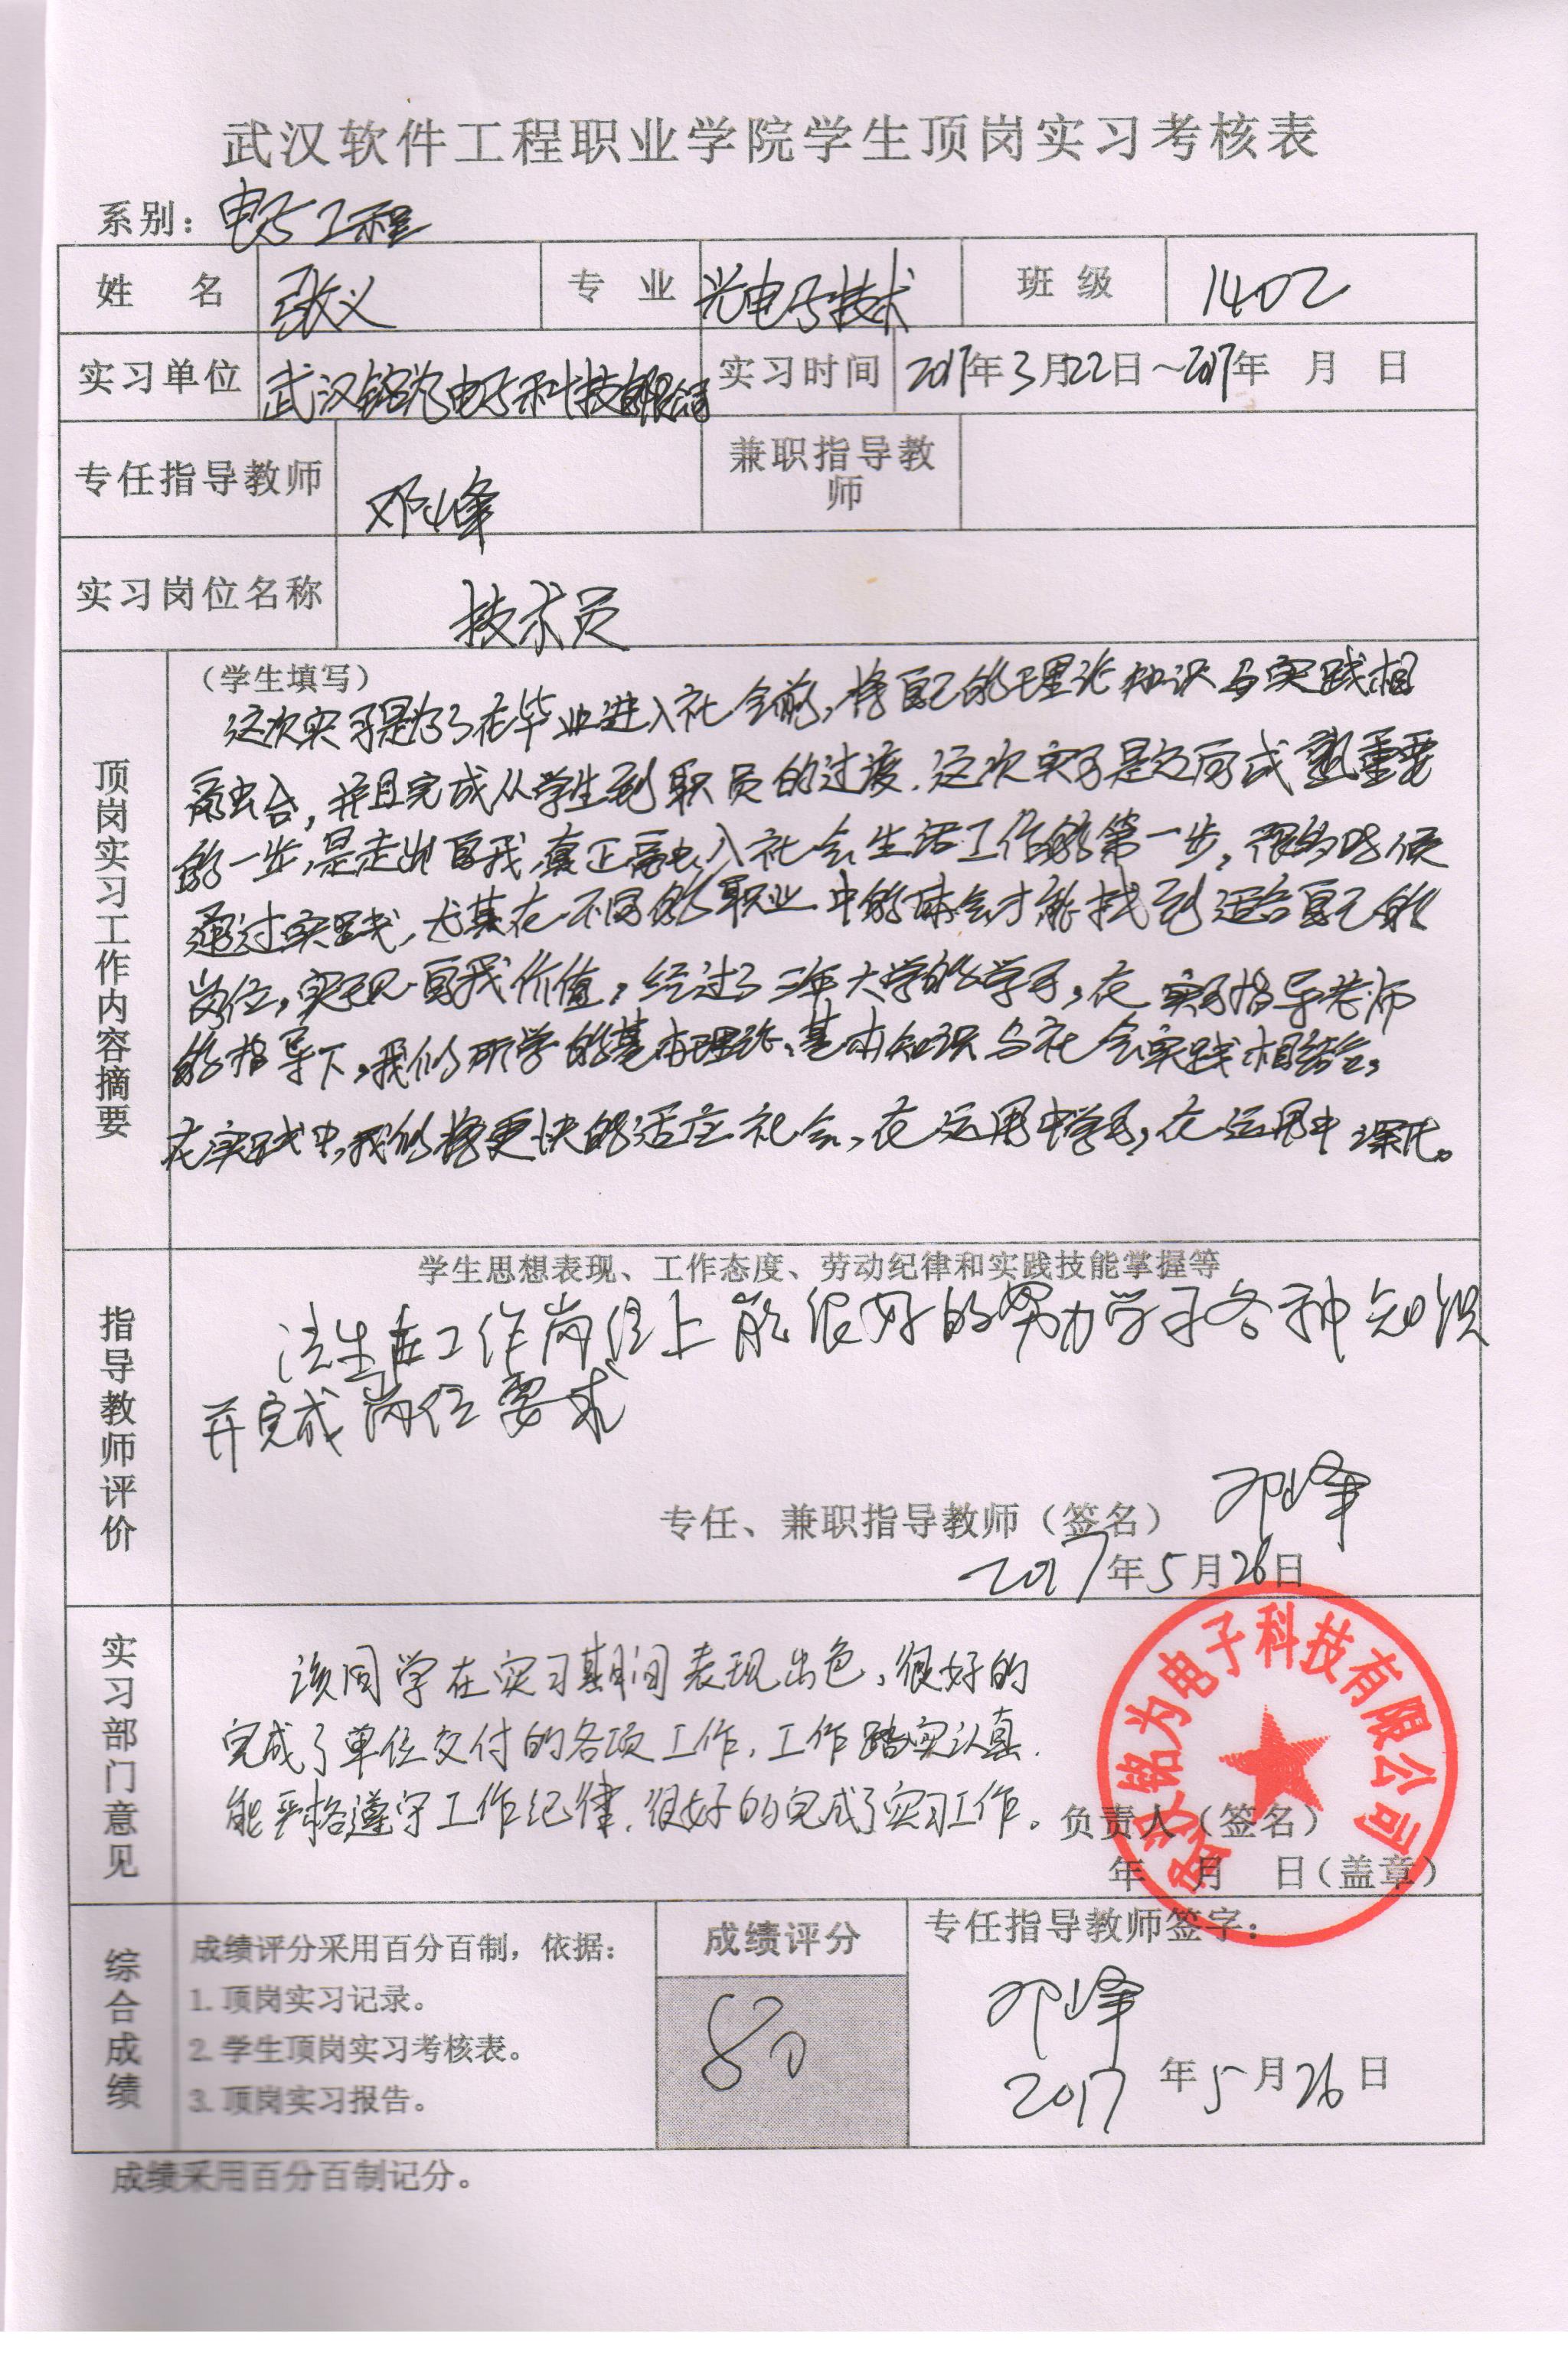 武汉软件工程职业学院学生顶岗实习考核表
系别：电子工程
姓 名 张义 专 业 光电子技术 班 级 1402
实习单位 武汉铭为电子科技有限公司 实习时间 2017年3月22日～2017年 月 日
专任指导教师 邓峰 兼职指导教师
实习岗位名称 技术员
顶岗实习工作内容摘要
（学生填写）
这次实习是为了在毕业进入社会前，将自己的理论知识与实践相
融合，并且完成从学生到职员的过渡．这次实习是迈向成熟重要
的一步，是走出自我真正融入社会生活工作的第一步，很多时候
通过实践，尤其在不同的职业中的体会才能找到适合自己的
岗位，实现自我价值，经过了三年大学的学习，在实习指导老师
的指导下，我们所学的基本理论、基本知识与社会实践相结合，
在实践中，我们将更快的适应社会，在运用中学习，在运用中深化。
指导教师评价
学生思想表现、工作态度、劳动纪律和实践技能掌握等
该生在工作岗位上能很好的努力学习各种知识
并完成岗位要求
专任、兼职指导教师（签名） 邓峰
2017年5月26日
实习部门意见
该同学在实习期间表现出色，很好的
完成了单位交付的各项工作，工作踏实认真．
能严格遵守工作纪律．很好的完成了实习工作。
负责人（签名）
年 月 日（盖章）
武汉铭为电子科技有限公司
综合成绩
成绩评分采用百分百制，依据：
1.顶岗实习记录。
2.学生顶岗实习考核表。
3.顶岗实习报告。
成绩评分
80
专任指导教师签字：
邓峰
2017年5月26日
成绩采用百分百制记分。